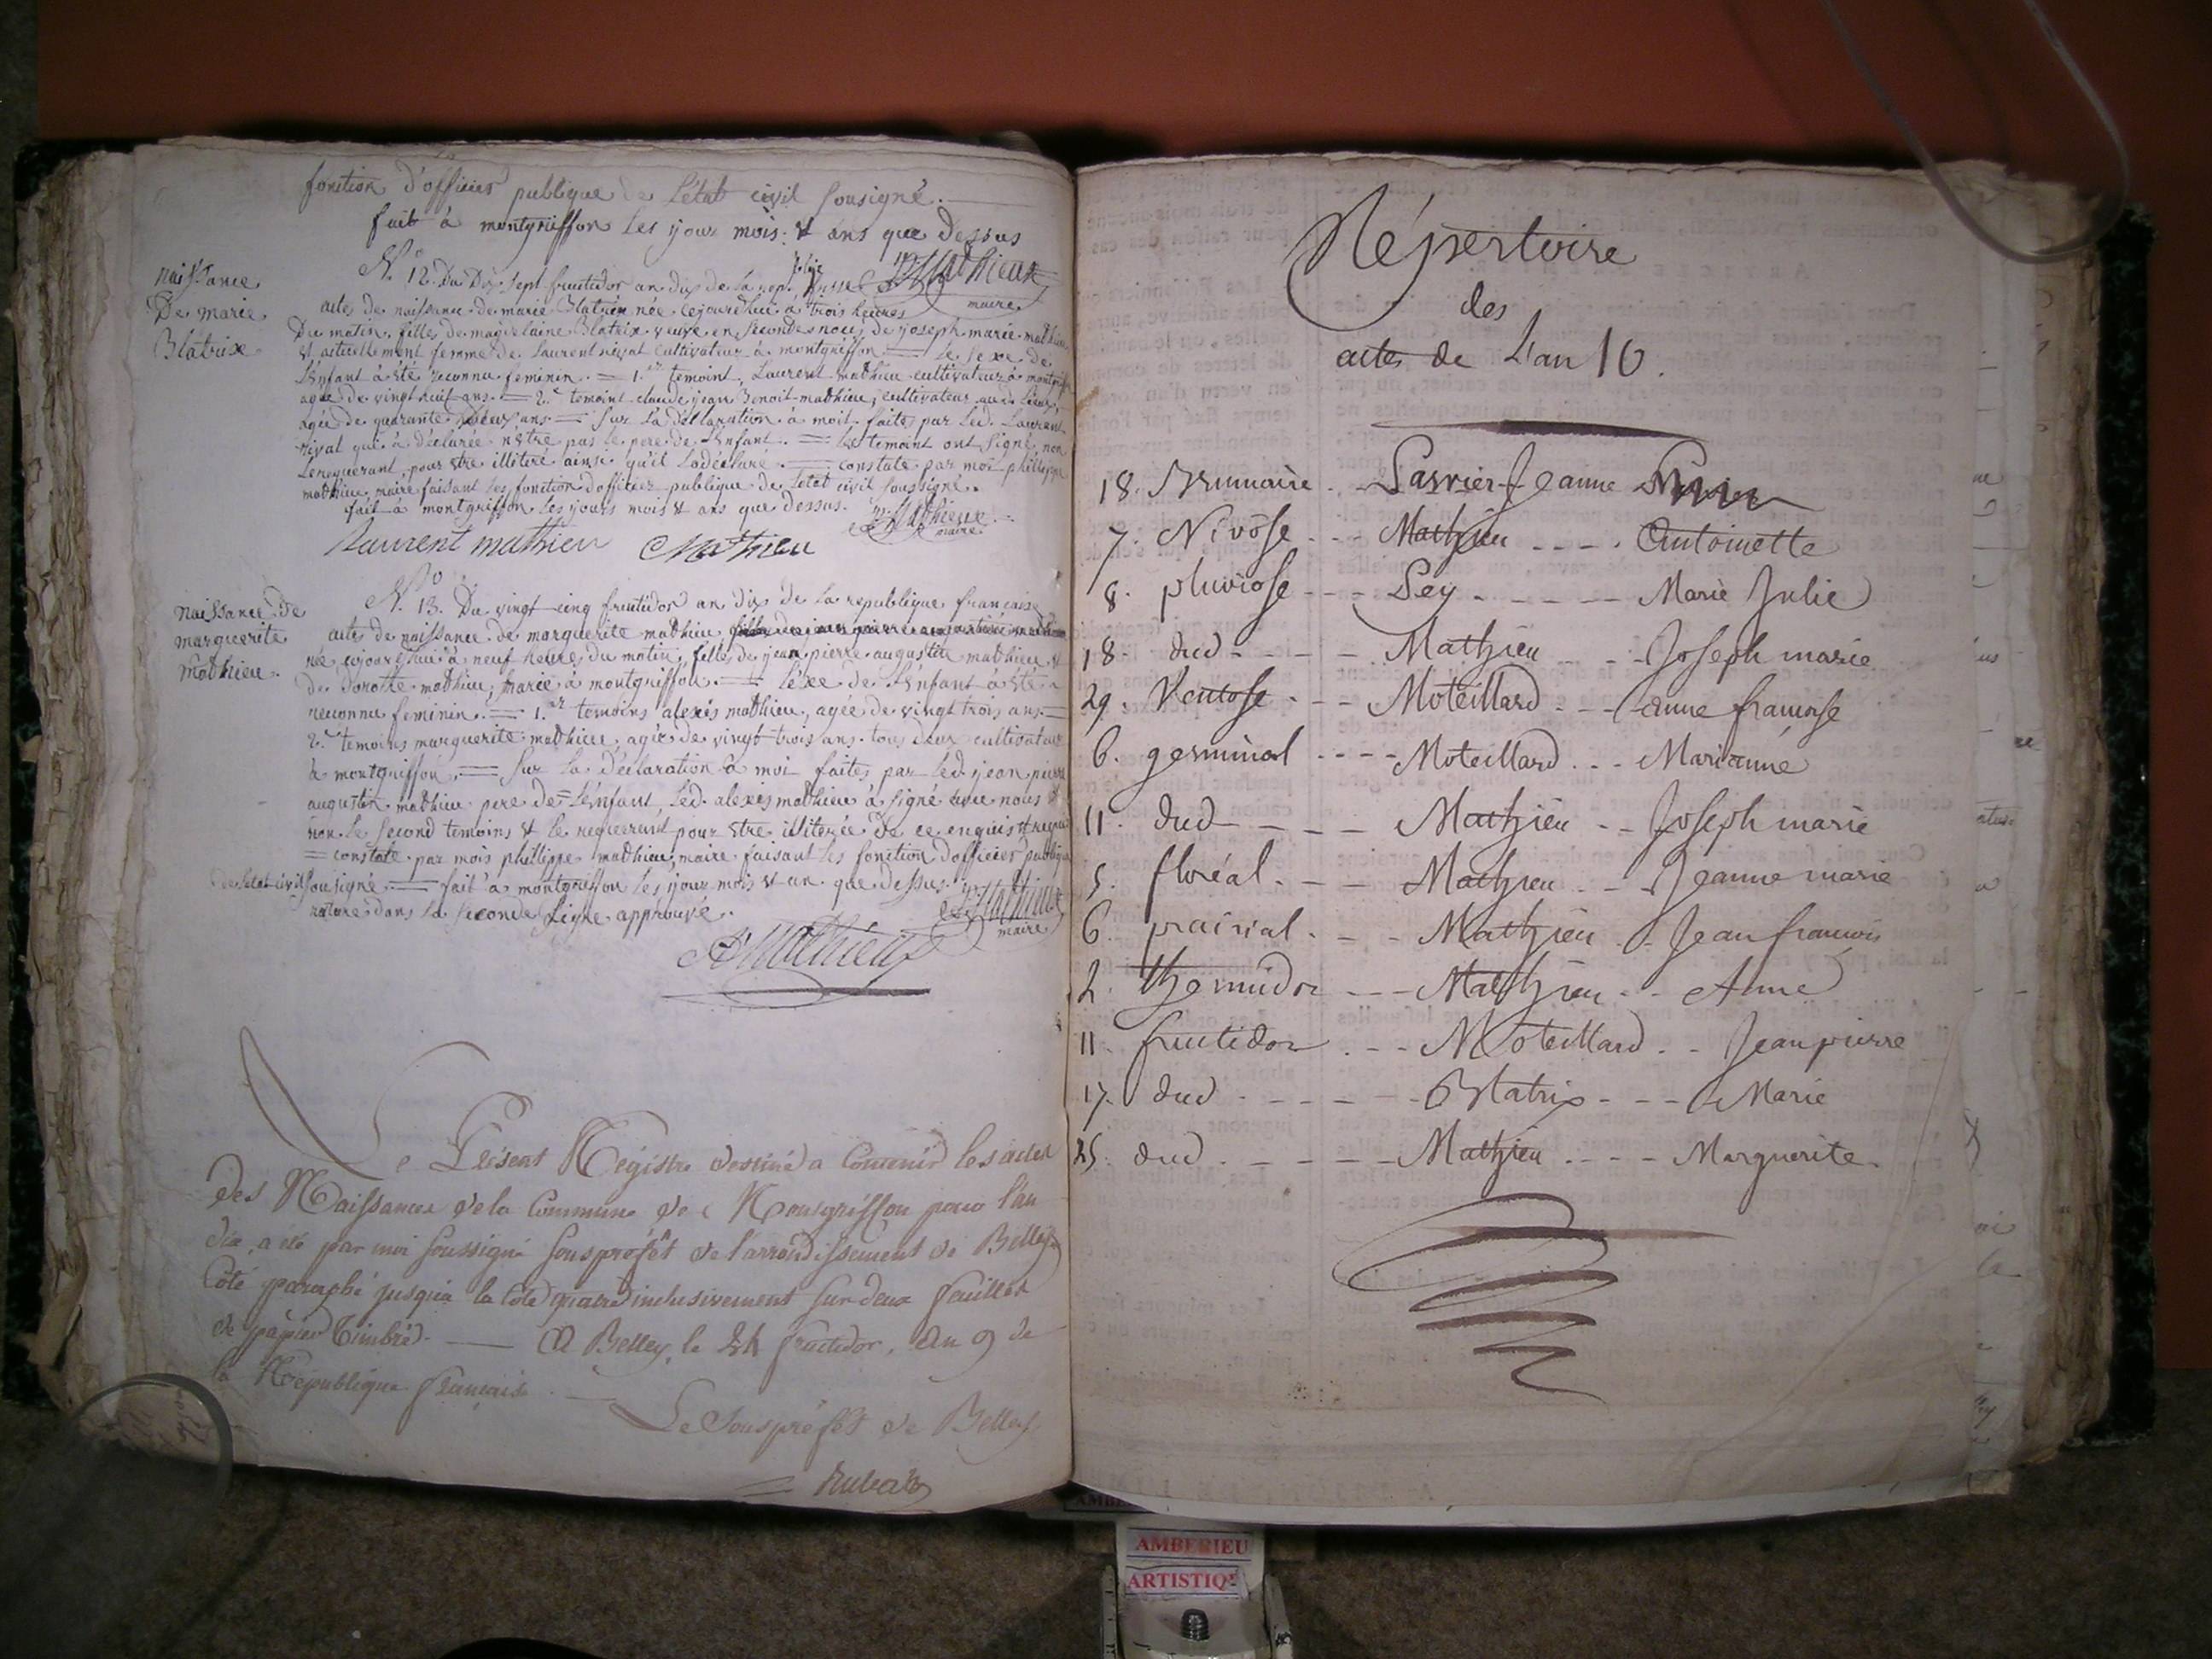 fonction d'officier publique de l'état civil sousigné.
fait à montgriffon les jour mois & ans que dessus
Mathieux
maire
naissance
De marie
Blatrix
N.º 12. Du Dix sept fructidor an dix de la rep.
acte de naissance de marie Blatrix née cejourdhui à trois heures
Du matin, fille de magdelaine Blatrix veuve en secondes noces de joseph marie mathieu
& actuellement femme de Laurent nival cultivateur à montgriffon = le sexe de
l'Enfant à été reconnu feminin. = 1.er temoint, Laurent mathieu cultivateur à montgriffon
agée de vingt huit ans. = 2.e temoint claude jean Benoit mathieu, cultivateur aud. Lieux,
agée de quarante Deux ans = sur la déclaration à moit faite par led. Laurent
nival qui à déclarée nêtre pas le pere de l'Enfant. = les temoint ont signé, non
Lerequerant, pour être illiteré ainsi qu'il la déclaré. = constaté par moi phillippe
mathieu, maire faisant les fonction d'officier publique de l'etat civil soussigné.
fait à montgriffon les jours mois & ans que dessus.
Mathieux
maire
Laurent mathieu Mathieu
naissance de
marguerite
mathieu.
N.º 13. Du vingt cinq fructidor an dix de la republique française
acte de naissance de marguerite mathieu
née cejourdhui à neuf heures du matin, fille de jean pierre augustin mathieu &
de dorotte mathieu, marié à montgriffon. = le sexe de l'Enfant à été
reconnu feminin. = 1.er temoins alexis mathieu, agée de vingt trois ans. =
2.e temoins marguerite mathieu agée de vingt trois ans. tous deux cultivateur
à montgriffon. = sur la déclaration à moi faites par led. jean pierre
augustin mathieu pere de l'enfant, led. alexis mathieu à signé avec nous &
non le second temoins & le requerant pour être illiterée de ce enquis & requis
= constaté par mois phillippe mathieu, maire faisant les fonction d'officier publique
de l'etat civil sousigné. = fait à montgriffon les jour mois & an que dessus.
rature dans la seconde Ligne approuvé.
Mathieux
maire
A Mathieux
Le Présent Registre destiné a Contenir les actes
des Naissances de la Commune de Montgriffon pour l'an
dix, a été par moi soussigné Sous préfêt de l'arrondissement de Belley
Coté & paraphé jusqu'à la Cote quatre inclusivement sur deux feuilles
de papier timbré. — A Belley, le 24 fructidor, An 9 de
la République française. —
Le Sous préfêt de Belley
Répertoire
des
actes de L'an 10.
18. Brumaire . Larrier Jeanne
7. Nivôse - - - Mathieu - - - . Antoinette
8. pluviose - - - Ley - - - - - Marie Julie
18. dud - - - - Mathieu - - Joseph marie
29. Ventose - - - Moteillard - - - anne françoise
6. germinal - - - - Moteillard - - - Marianne
11. dud - - - - Mathieu - - Joseph marie
5. floréal - - - Mathieu - - Jeanne marie
6. prairial. - - Mathieu - Jean francois
2. thermidor - - - Mathieu - - Anne
11. fructidor - - - Moteillard - - Jean pierre
17. dud - - - - - Blatrix - - - Marie
25. dud - - - - - Mathieu - - - - Marguerite
AMBERIEU
ARTISTIQ